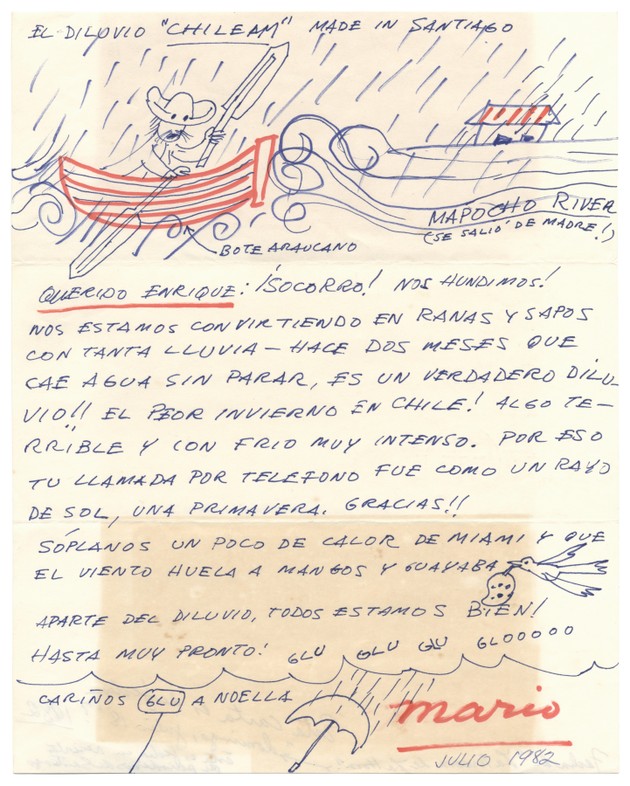 EL DILUVIO "CHILEAM" MADE IN SANTIAGO
MAPOCHO RIVER
(SE SALIÓ DE MADRE!)
BOTE ARAUCANO
QUERIDO ENRIQUE: ¡SOCORRO! NOS HUNDIMOS!
NOS ESTAMOS CONVIRTIENDO EN RANAS Y SAPOS
CON TANTA LLUVIA — HACE DOS MESES QUE
CAE AGUA SIN PARAR, ES UN VERDADERO DILU-
VIO!! EL PEOR INVIERNO EN CHILE! ALGO TE-
RRIBLE Y CON FRIO MUY INTENSO. POR ESO
TU LLAMADA POR TELÉFONO FUE COMO UN RAYO
DE SOL, UNA PRIMAVERA. GRACIAS!!
SÓPLANOS UN POCO DE CALOR DE MIAMI Y QUE
EL VIENTO HUELA A MANGOS Y GUAYABA
APARTE DEL DILUVIO, TODOS ESTAMOS BIEN!
HASTA MUY PRONTO! GLU GLU GLU GLOOOOO
CARIÑOS GLU A NOELLA
mario
JULIO 1982